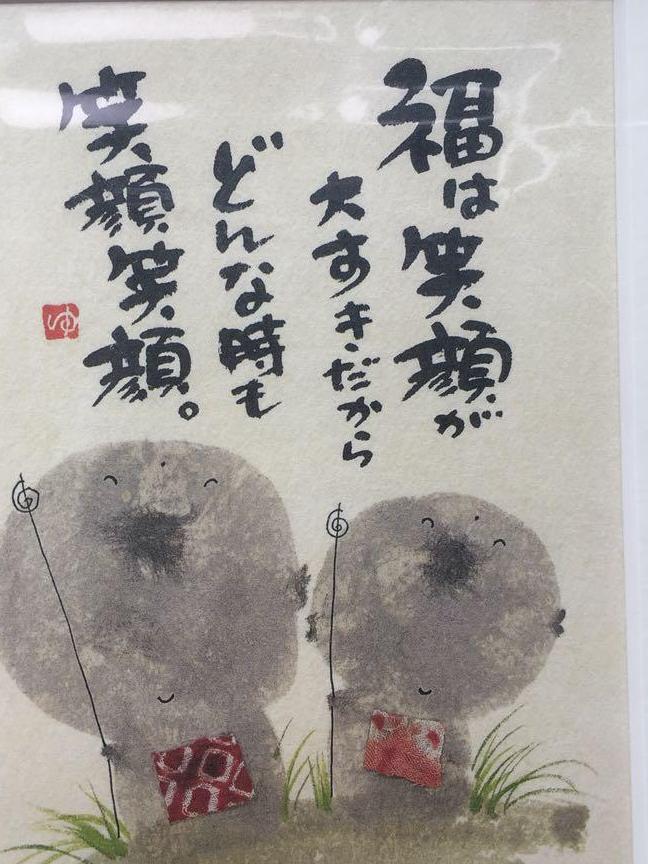 福は笑顔が
大すキだから
どんな時も
笑顔笑顔。
ゆ